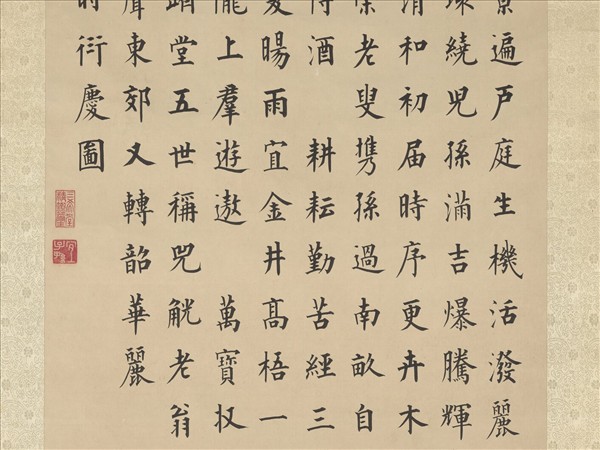 景遍戸庭生機活潑麗
繞兒孫滿吉爆騰輝
清和初届時序更卉木
老叟携孫過南畝自
酒 耕耘勤苦經三
暘雨宜金井髙梧一
上羣遊遨 萬寶収
堂五世稱兕觥老翁
東郊又轉韶華麗
衍慶圖